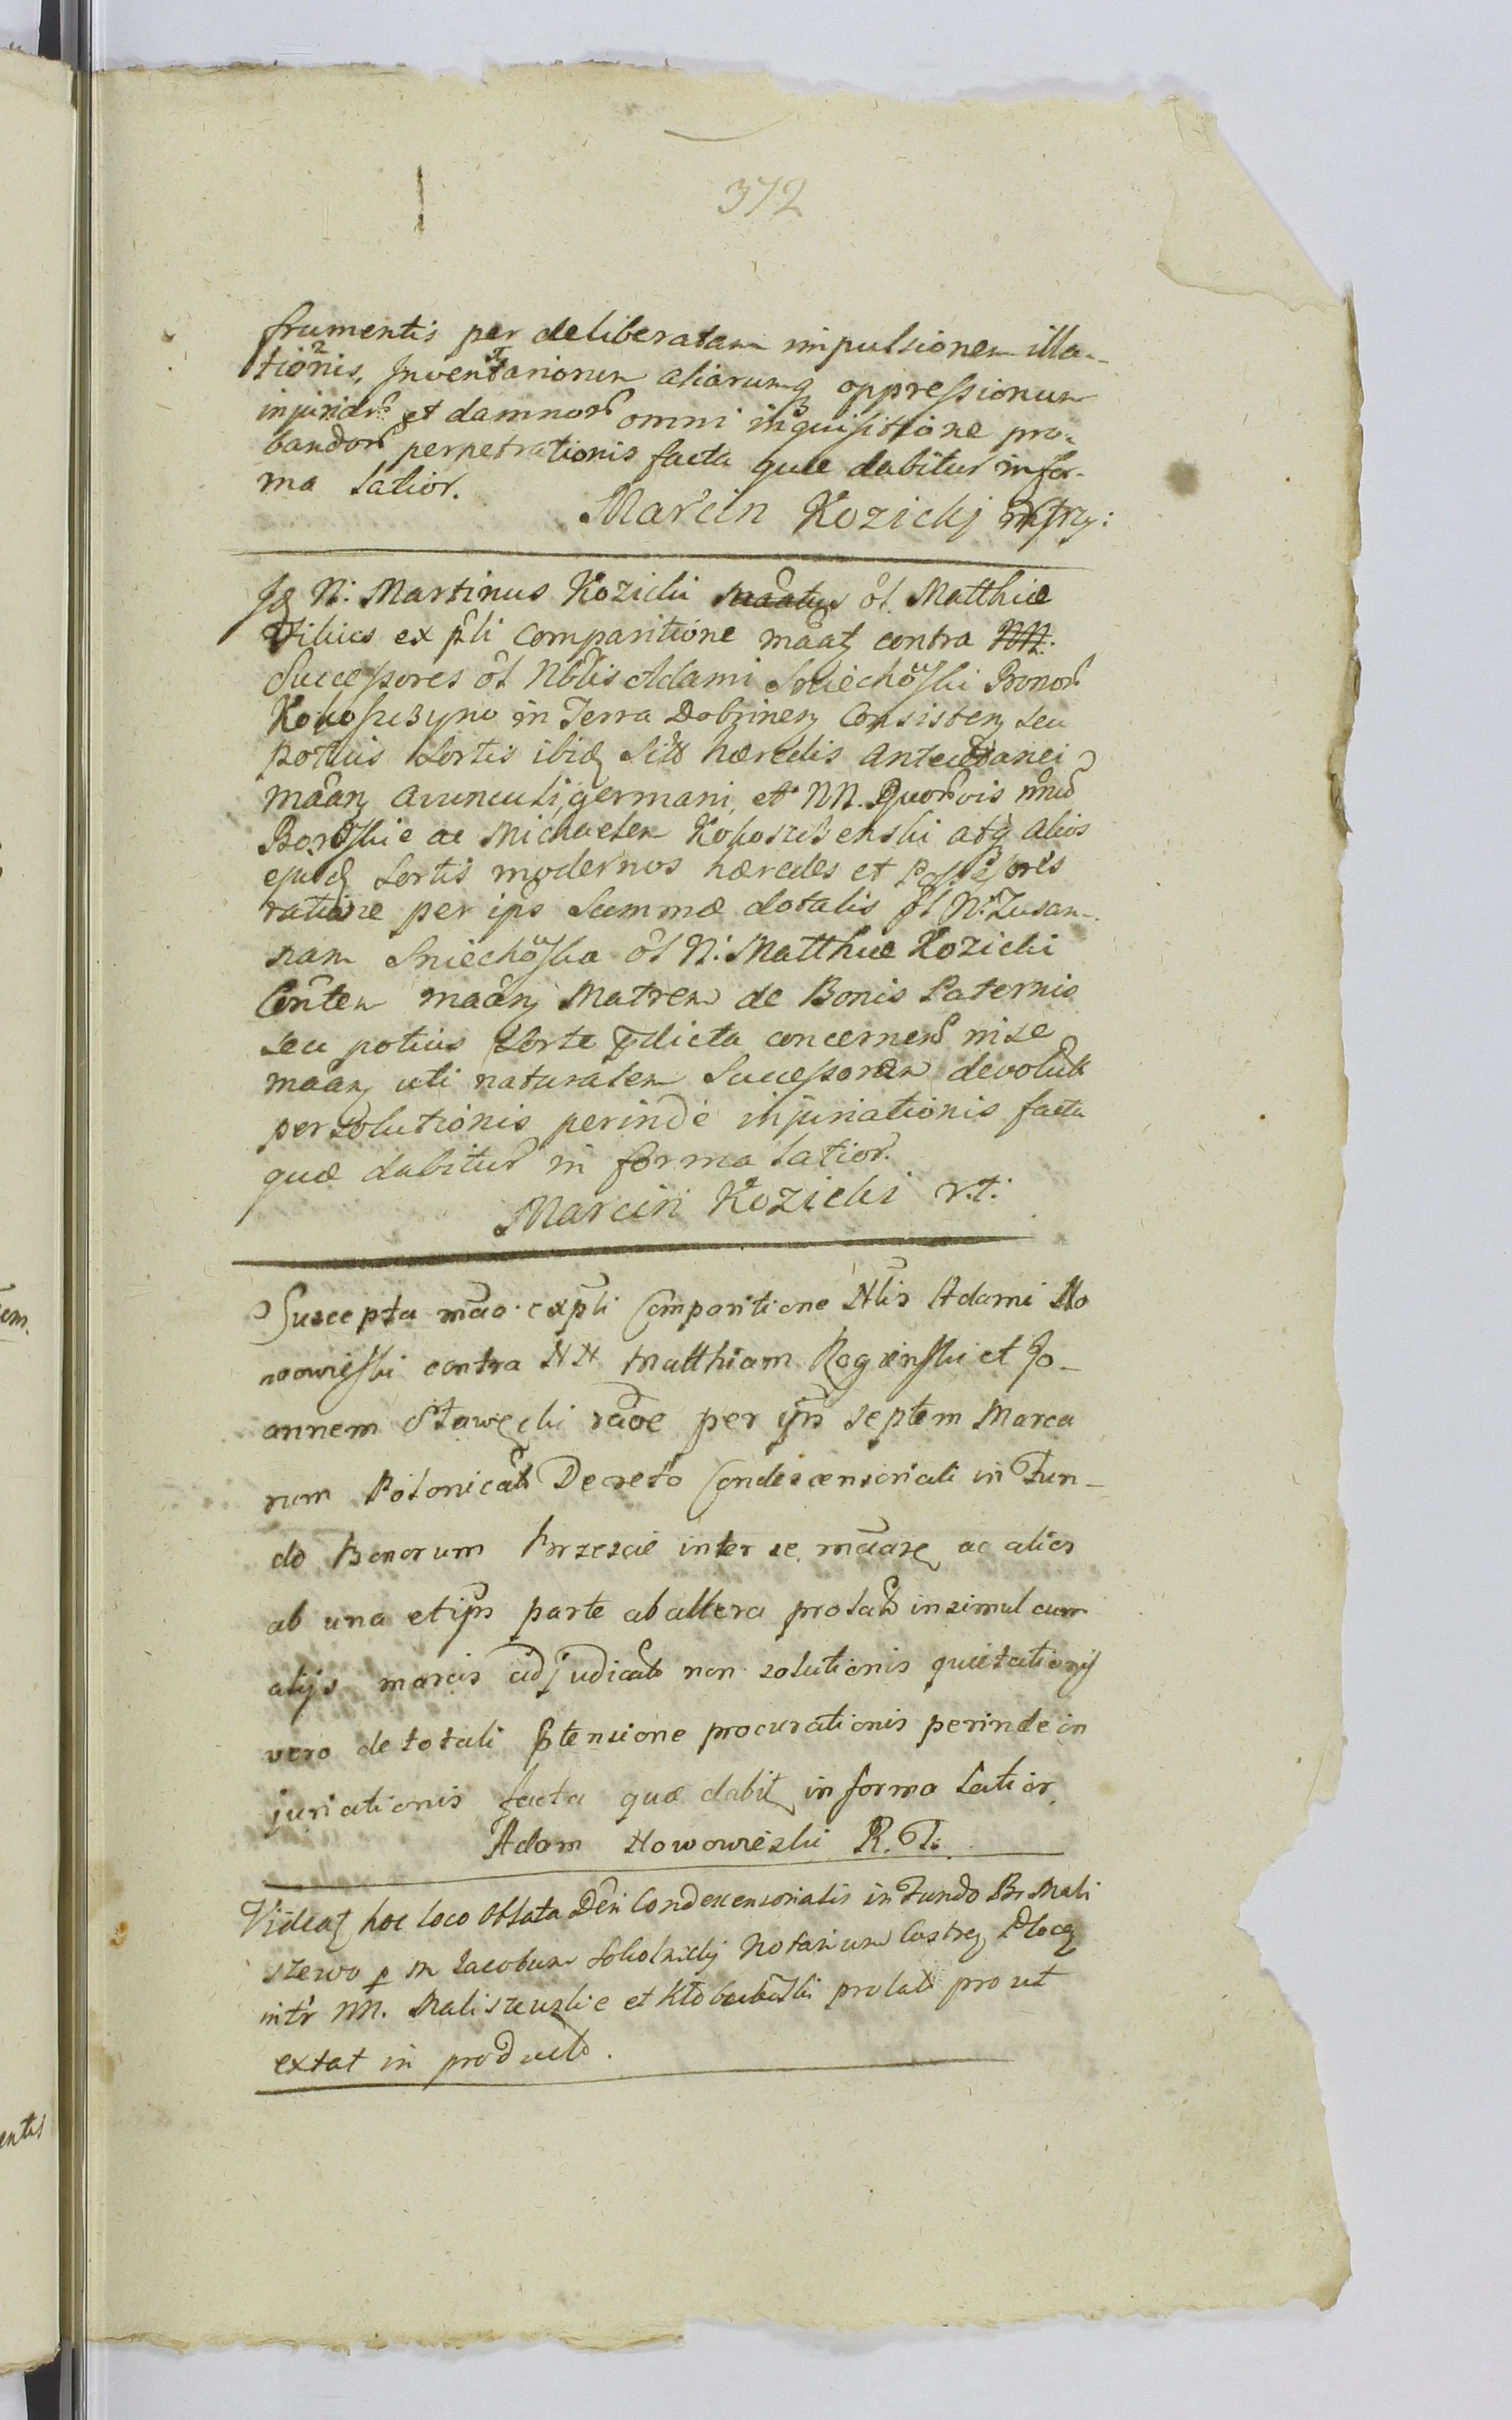 372
frumentis per deliberatam impulsionem illa-
tionis, Inventariorum aliarumq oppressionum
injuriar et damnor omni inquisitione pro-
bandor perpetrationis facta quæ dabitur in for-
ma latior.
Marcin Kozickj
Idq N: Martinus Kozicki ol Matthiæ
Filius ex pli comparitione maatq contra NN.
Successores ol Nblis Adami Sniechowski Bonor
Kokoszczyno in Terra Dobrinen Consisten seu
potius Sortis ibid sitæ hæredis antecedanei
maan avunculi germani, et NN. Quorvis
ac Michaelem atq alios
ejusd Sortis modernos hæredes et Possessores
ratione per ips Summæ dotalis ol N: Zusan-
nam Sniechowska ol N: Matthiæ Kozicki
Contem maan Matrem de Bonis Paternis
seu potius Sorte pdicta concernen in se
maan uti naturalem Successorem devolutæ
persolutionis perinde injuriationis facta
quæ dabitur in forma latior.
Marcin Kozicki r.t.
Suscepta mao expli Comparitione Nlis Adami No
wowieski contra NN Matthiam Rogienski et Jo-
annem Stawęcki raoe per ips septem Marca
rum Polonical Decreto Condescensoriali in Fun-
do Bonorum Brzescie inter se maase ac alios
ab una et ips parte ab altera prolato insimul cum
alijs marcis adjudicat non solutionis quietationis
vero de totali ptensione procurationis perinde in
juriationis facta quæ dabit in forma latior
Adam Nowowieski R. T.
Videatq hoc loco Oblata Dcri Condescensorialis in Fundo Br Mali
szewo p M Jacobum Sokolnickj Notarium Castren Plocen
intr NN. Maliszewskie et prolati pro ut
extat in producto.